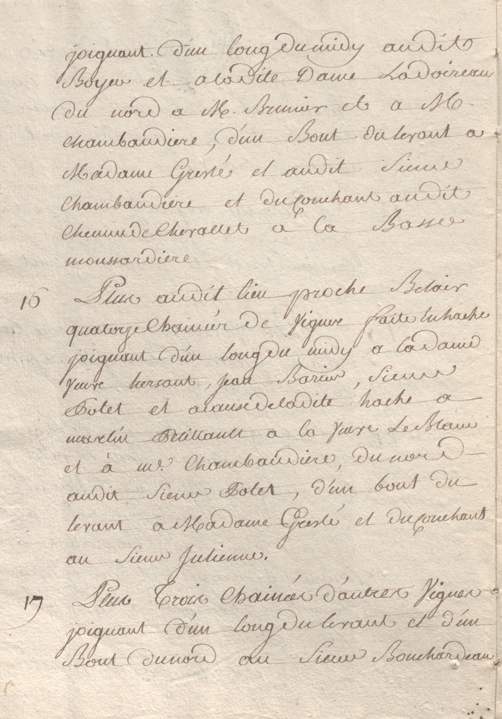 joignant d'un long du midy audit
Boyer et a ladite Dame Ladoireau
du nord a M. Brunier et a M.
Chambaudiere, d'un Bout du levant a
Madame Greslé et audit Sieur
Chambaudiere et du couchant audit
Chemin de Chevallet a la Basse
moussardiere
16 Plus audit lieu proche Belair
quatorze Chainées de Vignes faite en hache
joignant d'un long du midy a la dame
Veuve hersant, Jean Barier, Sieur
Potet et a cause de ladite hache a
martin Brillault a la Veuve Le Blanc
et à Mr. Chambaudiere, du nord
audit Sieur Potet, d'un bout du
levant a Madame Greslé et du Couchant
au Sieur Julienne.
17 Plus Trois Chainées d'autres Vignes
joignant d'un long du levant et d'un
Bout du nord au Sieur Bouchardeau